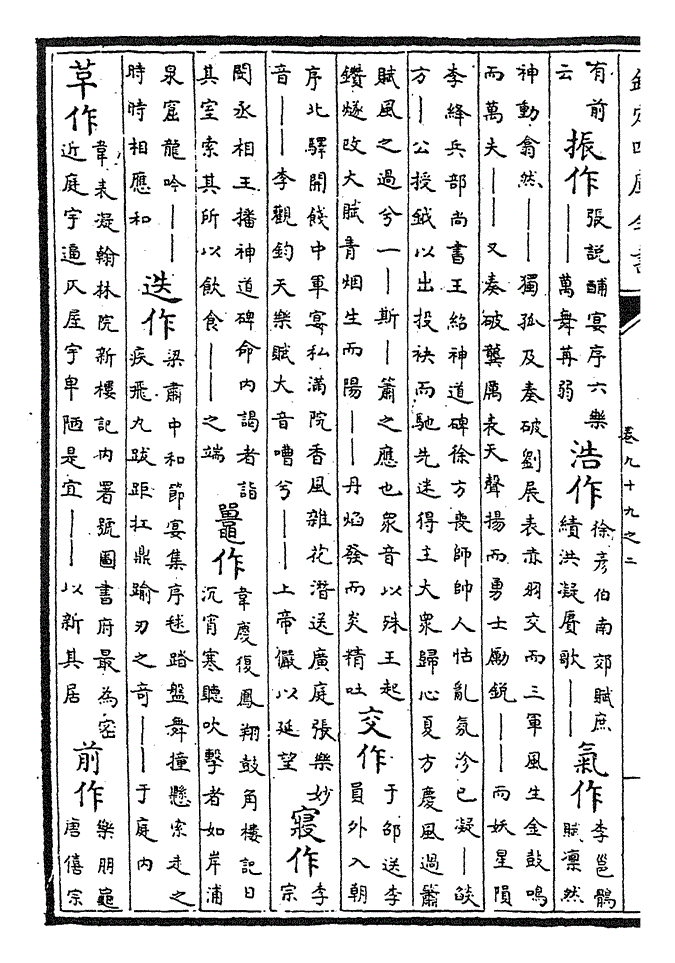 欽定四庫全書
卷九十九之二
有前
云
振作
張說酺宴序六樂
——萬舞苒弱
浩作
徐彥伯南郊賦庶
績洪凝賡歌——
氣作
李邕鶻
賦凜然
神動翕然——獨孤及奏破劉展表亦羽交而三軍風生金鼓鳴
而萬夫——又奏破龔厲表天聲揚而勇士勵銳——而妖星隕
李絳兵部尚書王紹神道碑徐方喪師帥人怙亂氛沴已凝—燄
方—公授鉞以出投袂而馳先迷得主大衆歸心夏方慶風過簫
賦風之過兮一—斯—簫之應也衆音以殊王起
鑽燧改火賦青烟生而陽——丹焰發而炎精吐
交作
于邵送李
員外入朝
序北驛開餞中軍宴私滿院香風雜花潛送廣庭張樂妙
音——李觀鈞天樂賦大音嘈兮——上帝儼以延望
寢作
李
宗
閔丞相王播神道碑命內謁者詣
其室索其所以飲食——之端
鼉作
韋慶復鳳翔鼓角樓記日
沉宵寒聽吹擊者如岸浦
泉窟龍吟——
時時相應和
迭作
梁肅中和節宴集序毬踏盤舞撞懸索走之
疾飛九跋距扛鼎踰刃之奇——于庭內
草作
韋表凝翰林院新樓記內署號圖書府最為密
近庭宇逼仄屋宇卑陋是宜——以新其居
前作
樂朋龜
唐僖宗